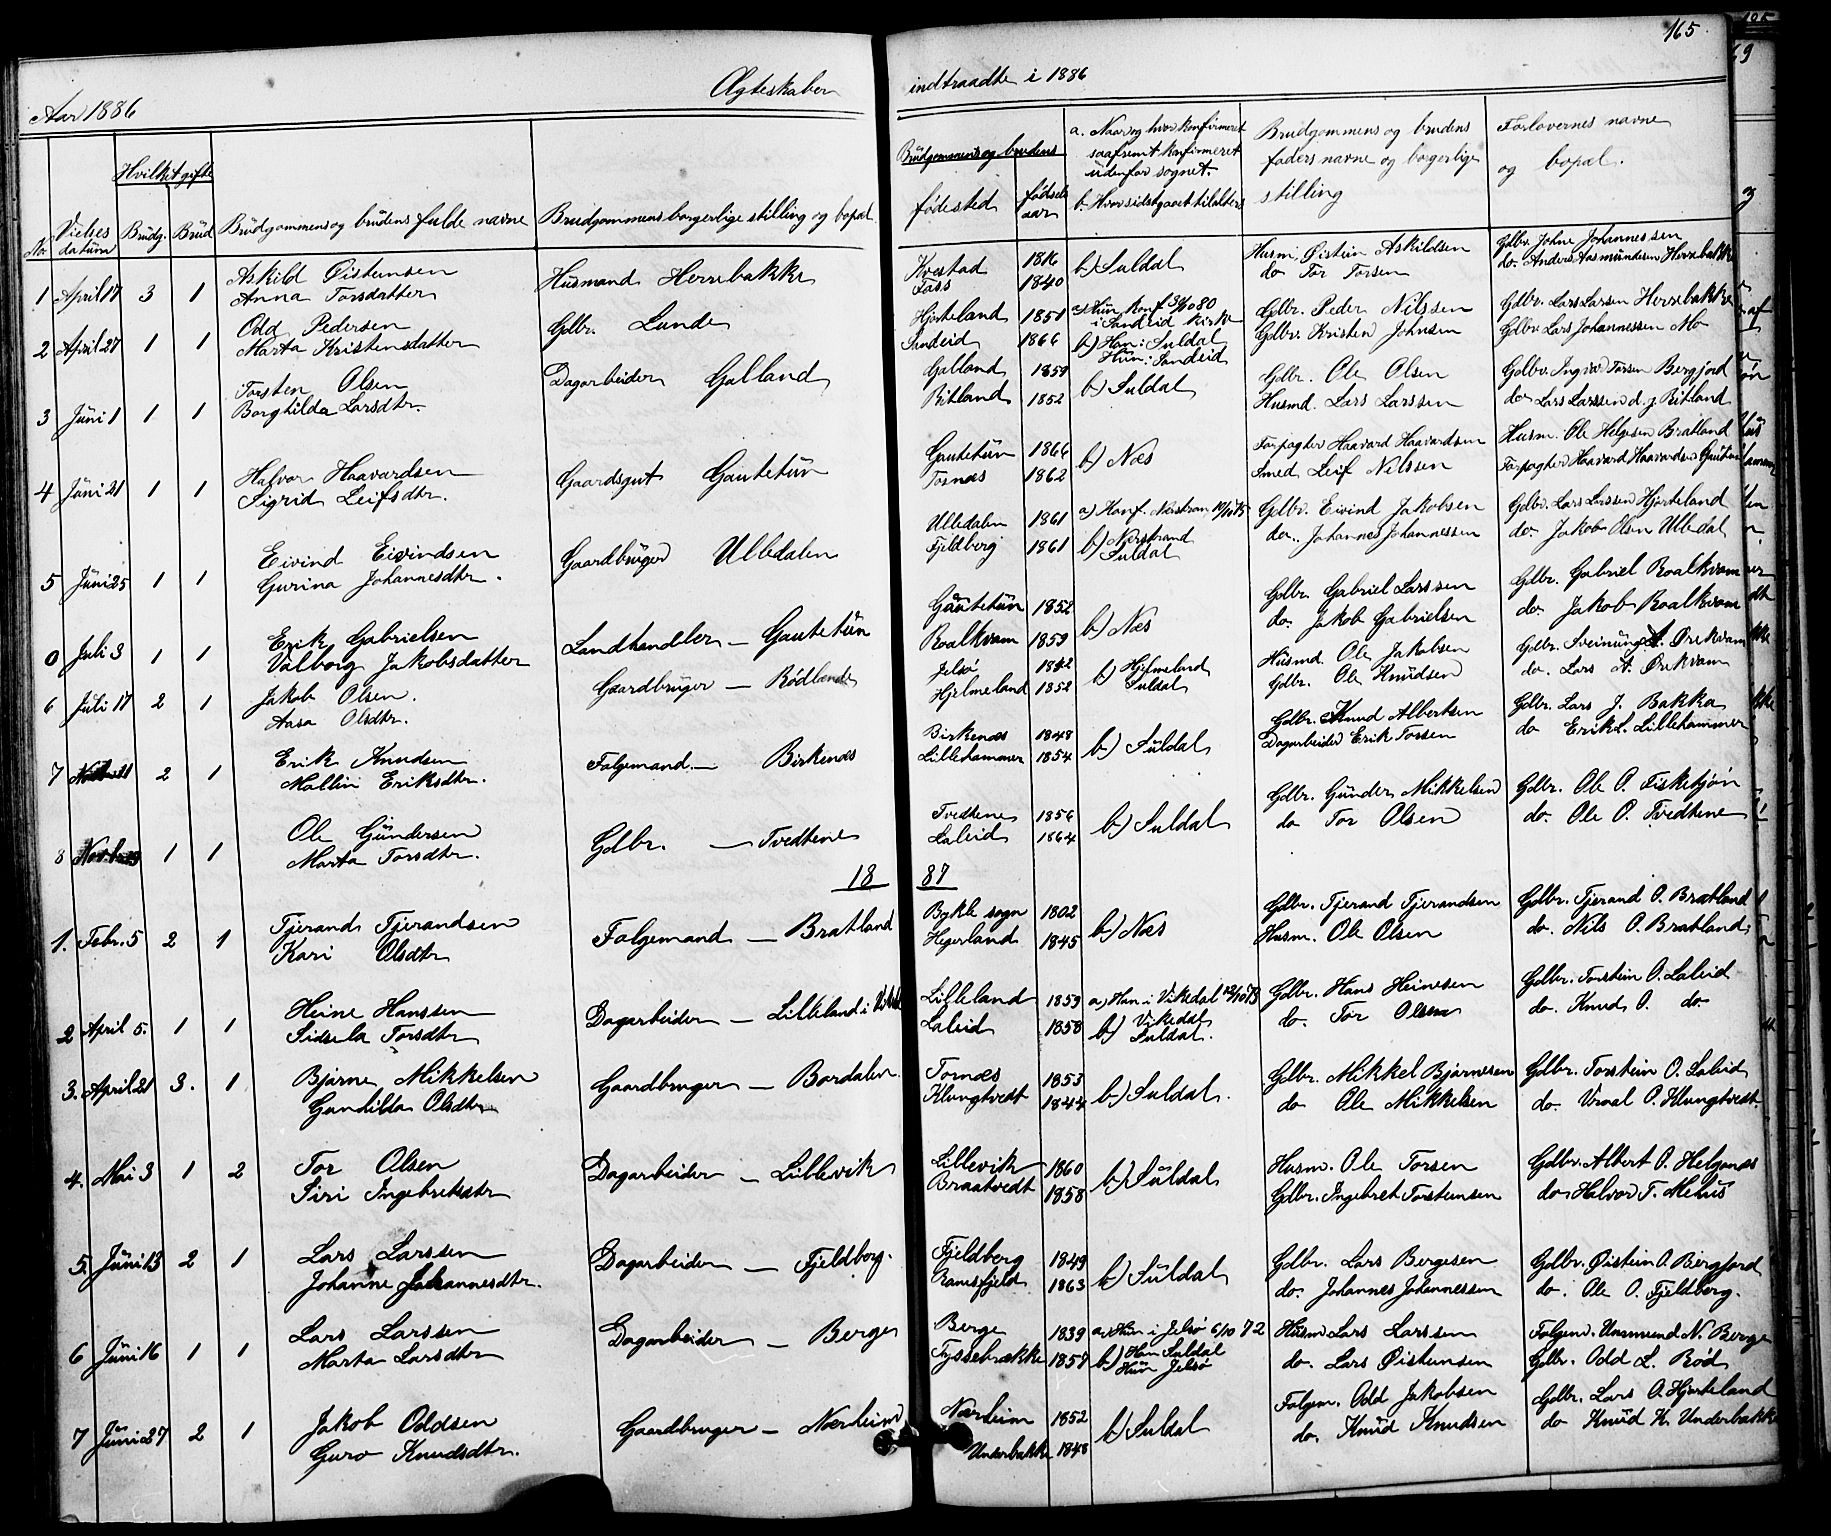 165
Aar 1886
Ægteskaber
indtraadte i 1886
No
Vielses datum
Hvilket gifte
Brudg.
Brud
Brudgommens og brudens fulde navne
Brudgommens borgerlige stilling og bopæl
Brudgommens og brudens
fødested
fødsels aar
a. Naar og hvor konfirmeret saafremt konfirmeret udenfor sognet.
b. Hvor sidst gaaet til alters
Brudgommens og brudens faders navne og borgerlige stilling
Forlovernes navne og bopæl.
1 April 17 3 1 Askild Øistensen Husmand Herrebakke Kvestad 1816 b) Suldal Husm. Øistein Askildsen Gdbr. Johne Johannessen
Anna Torsdatter Foss 1840 do Tor Torsen do. Anders Aasmundsen Herrebakke
2 April 27 1 1 Odd Pedersen Gdbr. Lunde Hjorteland 1851 a) Hun konf. 3/10 80 i Sandeid kirke Gdbr. Peder Nilssen Gdbr. Lars Larsen Herrebakke
Marta Kristensdatter Sandeid 1866 b) Han: Suldal Hun: Sandeid Gdbr. Kristen Johnsen Gdbr. Lars Johannessen Mo
3 Juni 1 1 1 Torsten Olsen Dagarbeider Galland Galland 1859 b) Suldal Gdbr. Ole Olsen Gdbr. Ingvar Torsen Bergjord
Borghilda Larsdtr. Ritland 1852 Husmd. Lars Larssen do Lars Larssen d. y. Ritland
4 Juni 21 1 1 Halvor Haavardsen Gaardsgut Gautetun Gautetun 1866 b) Næs Forpagter Haavard Haavardsen Husm. Ole Helgesen Bratland
Sigrid Leifsdtr. Tornæs 1862 Smed Leif Nilssen Forpagter Haavard Haavardsen Gautetun
5 Juni 25 1 1 Eivind Eivindsen Gaardbruger Ulledalen Ulledalen 1861 a) Konf. Nærstrand Gdbr. Eivind Jakobsen Gdbr. Lars Larssen Hjorteland
Gurina Johannesdtr. Fjeldberg 1861 b) Nærstrand Suldal do. Johannes Johannessen do. Jakob Olsen Ulledal
0 Juli 3 1 1 Erik Gabrielsen Landhandler - Gautetun Gautetun 1852 b) Næs Gdbr. Gabriel Larssen Gdbr. Gabriel Roalkvam
Valborg Jakobsdatter Roalkvam 1859 do. Jakob Gabrielsen do. Jakob Roalkvam
6 Juli 17 2 1 Jakob Olsen. Gaardbruger - Rødland Jelsø 1842 b) Hjelmeland Suldal Husmd. Ole Jakobsen Gdbr. Sveinung A. Ørekvam
Aasa Olsdtr. Hjelmeland 1852 Gdbr. Ole Knudsen do. Lars A. Ørekvam
7 2 1 Erik Knudsen Folgemand. - Birkenæs Birkenæs 1848 b) Suldal Gdbr. Knud Albertsen Gdbr. Lars J. Bakka
Mallin Eriksdtr. Lillehammer 1854 Dagarbeider Erik Torsen do Erik L. Lillehammer
8 1 1 Ole Gundersen Gdbr. - Tvedtene Tvedtene 1856 b) Suldal Gdbr. Gunder Mikkelsen Gdbr. Ole O. Fisketjøn
Marta Torsdtr. Laleid 1864 do Tor Olsen do. Ole O. Tvedtene
18 87
1. Febr. 5 2 1 Tjerand Tjerandsen Folgemand - Bratland Bykle sogn 1802 b) Næs Gdbr. Tjerand Tjerandsen Gdbr. Tjerand O. Bratland
Kari Olsdtr Hegerland 1845 Husm. Ole Olsen do. Nils O. Bratland
2 April 5. 1 1 Heine Hanssen Dagarbeider - Lilleland i Lilleland 1859 a) Han i Vikedal Gdbr. Hans Heinesen Gdbr. Torstein O. Laleid
Sidsela Torsdtr Laleid 1858 b) Vikedal Suldal. do. Tor Olsen do. Knud O. do
3. April 21 3. 1 Bjarne Mikkelsen Gaardbruger - Bordalen Tornæs 1853 b) Suldal. Gdbr. Mikkel Bjarnesen Gdbr. Torstein O. Laleid
Gunhilda Olsdtr Klungtvedt 1844 do Ole Mikkelsen do. O. Klungtvedt.
4. Mai 3 1 2 Tor Olsen Dagarbeider - Lillevik Lillevik 1860 b) Suldal Husm. Ole Torsen Gdbr. Albert O. Helganæs
Siri Ingebretsdtr Braatvedt 1858 Gdbr. Ingebret Torsteinsen do Halvor T. Mehus
5. Juni 13 2 1 Lars Larssen Dagarbeider - Fjeldberg. Fjeldberg 1849 b) Suldal Gdbr. Lars Bergesen Gdbr. Øistein O. Bergjord
Johanne Johannesdtr. Ramsfjeld 1863 do. Johannes Johannessen do. Ole O. Fjeldberg.
6 Juni 16 1 1 Lars Larssen Dagarbeider - Berge Berge 1839 a) Hun i Jelsø 6/10 72 Husm. Lars Larssen Folgem. Aasmund N. Berge
Marta Larsdtr Tyssebrække 1857 b) Han Suldal Hun Jelsø do. Lars Øistensen Gdbr. Odd L. Rød
7 Juni 27 2 1 Jakob Oddsen Gaardbruger - Nærheim Nærheim 1852 b) Suldal Folgem. Odd Jakobsen Gdbr. Lars O. Hjorteland
Guro Knudsdtr. Underbakke 1848 do. Knud Knudsen do Knud K. Underbakke